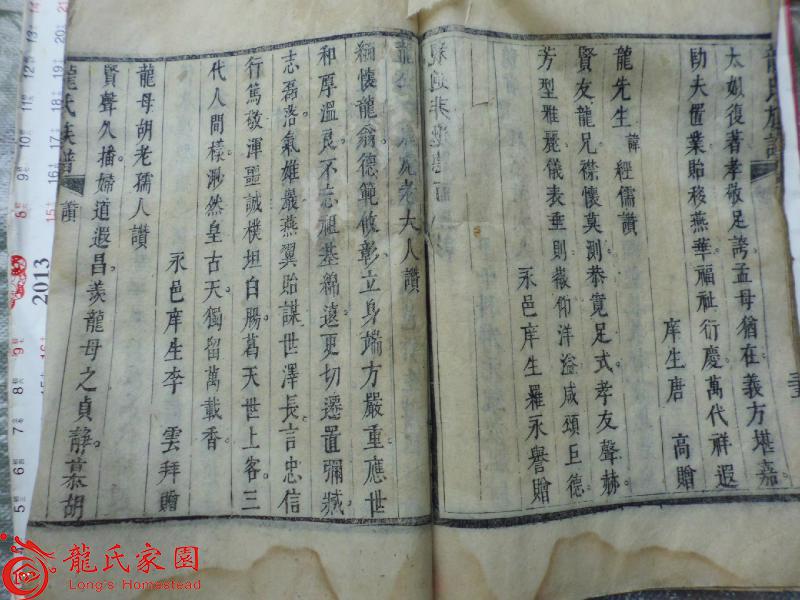 龍氏族譜
太姒復著孝敬足誇孟母猶在義方堪嘉
助夫置業貽移燕華福祉衍慶萬代祥遐
庠生唐 高贈
龍先生諱經儒讚
賢友龍兄襟懷莫測恭寬足式孝友聲赫
芳型雅麗儀表垂則徽仰洋溢咸頌巨德
永邑庠生羅永譽贈
老大人讚
緬懷龍翁德範攸彰立身端方嚴重應世
和厚溫良不忘祖基綿遠更切遷置彌臧
志磊落氣雄嚴燕翼貽謀世澤長言忠信
行篤敬渾噩誠樸坦白腸葛天世上客三
代人間樣渺然皇古天獨留萬載香
永邑庠生李 雲拜贈
龍母胡老孺人讚
賢聲久播婦道遐昌羨龍母之貞靜慕胡
龍氏族譜 讚
2013
龍氏家園
Long's Homestead